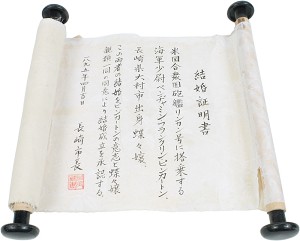 結婚証明書
米国合衆国砲艦リンカーン号に搭乗する
海軍少尉ベンヂャミン・フランクリン・ピンカートン、
長崎県大村市出身蝶々嬢、
この両者の結婚をピンカートンの意志と蝶々嬢
親類一同の同意により結婚成立を承認する。
一八九五年四月吉日
長崎市長